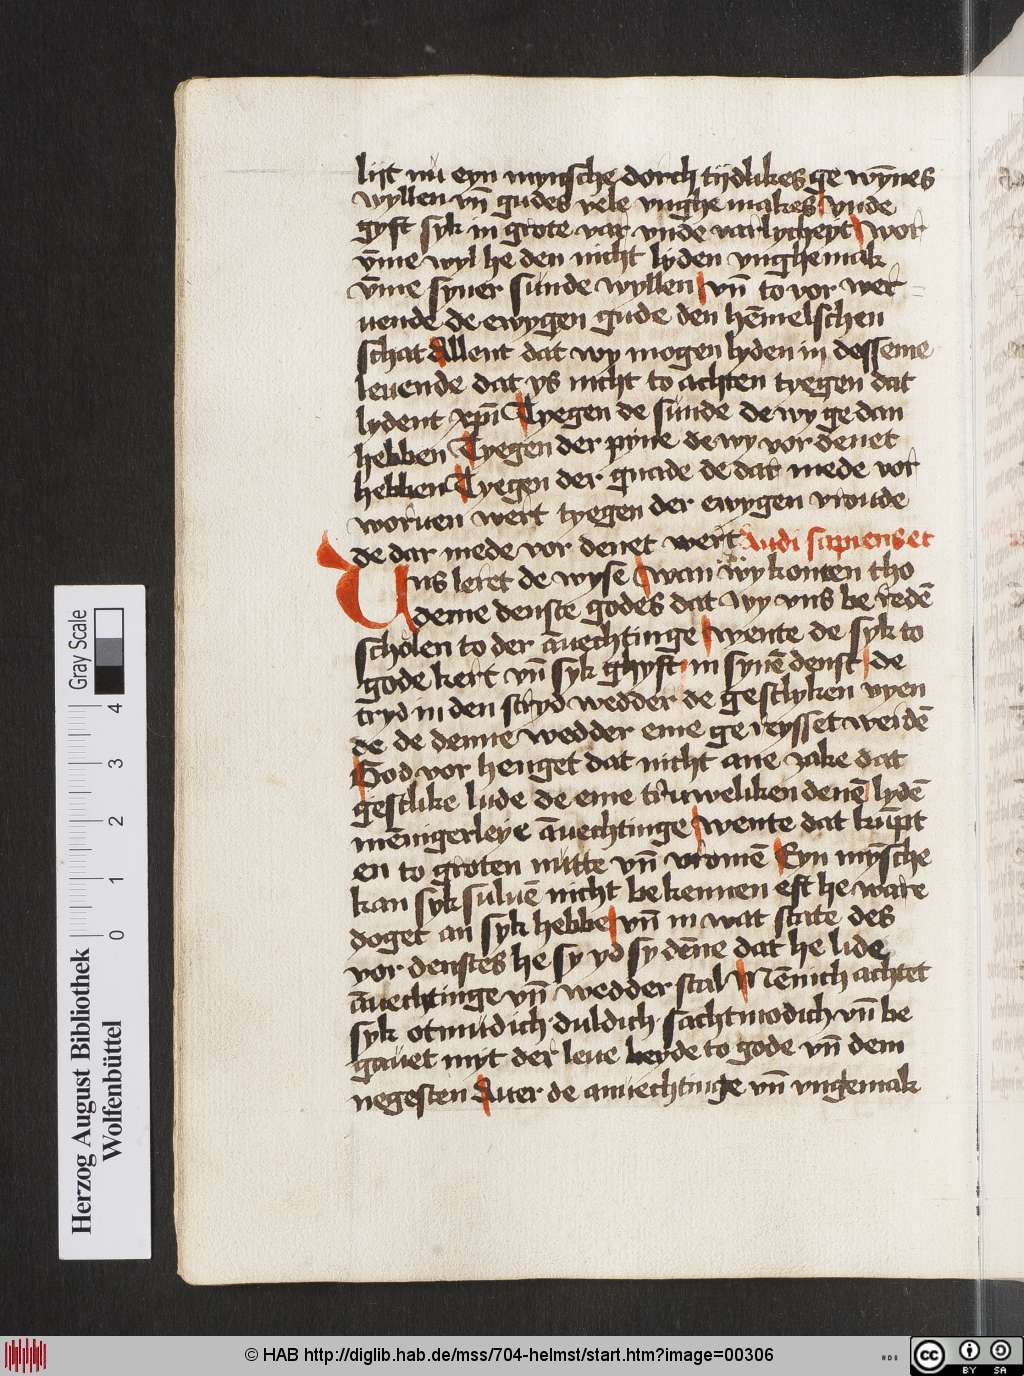 lijt nu eyn mynsche dorch tijdlikes ge wȳnes
wyllen vn̄ gudes vele vnghe makes vnde
gyft syk in grote var vnde varlycheyt wor
v̄me wyl he den nicht lyden vnghemak
v̄me syner sunde wyllen vn̄ to vor wer
uende de ewygen gude den hēmelschen
schat Allent dat wy mogen lyden in desseme
leuende dat ys nicht to achten tyegen dat
lydent xp̄i Tyegen de sunde de wy ge dan
hebben Tyegen der pyne de wy vor denet
hebben Tyegen der gnade de dar mede vor
woruen wert tyegen der ewygen vroude
de dar mede vor denet wert Audi sapiens et
Uns leret de wyse wan wy komen tho
deme denste godes dat wy vns be redē
scholen to der āuechtinge wente de syk to
gode kert vn̄ syk ghyft in synē denst de
tryd in den stryd wedder de gestlyken vyen
de de denne wedder eme ge reysset werdē
God vor henget dat nicht ane zake dat
gestlike lude de eme truweliken denē lydē
mēnigerleye āuechtinge wente dat kūpt
en to groten nutte vn̄ vromē Eyn mȳsche
kan syk suluē nicht be kennen eft he ware
doget an syk hebbe vn̄ in wat state des
vor denstes he sy yd sy dēne dat he lide
āuechtinge vn̄ wedder stal Mēnich achtet
syk otmudich duldich sachtmodich vn̄ be
gauet myt der leue beyde to gode vn̄ dem
negesten Auer de anuechtinge vn̄ vngemak
Herzog August Bibliothek
Wolfenbüttel
0 1 2 3 4
Gray Scale
© HAB http://diglib.hab.de/mss/704-helmst/start.htm?image=00306
HAB
cc BY SA